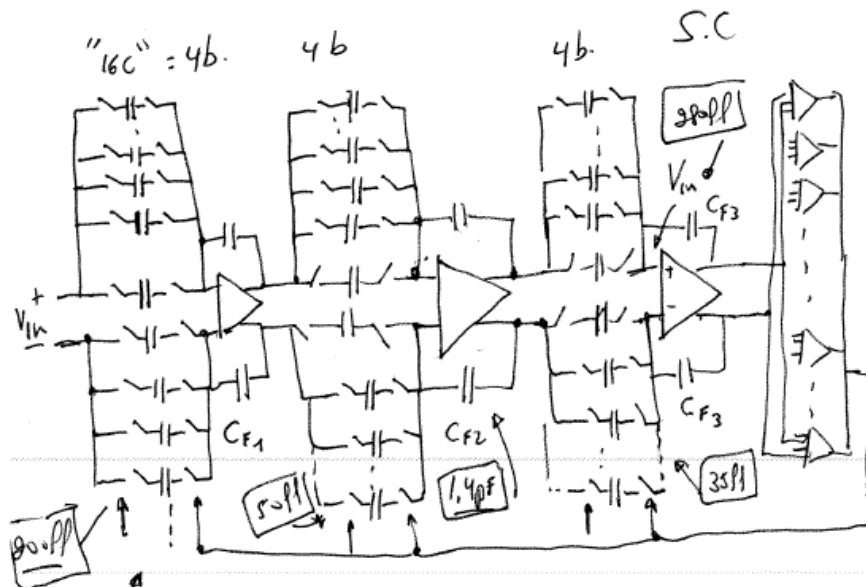 "16C" = 4b. 4b 4b. S.C
280ff
Vin
CF3
+
Vin
-
+
-
CF1 CF2 CF3
200ff 50ff 1,4pF 35ff